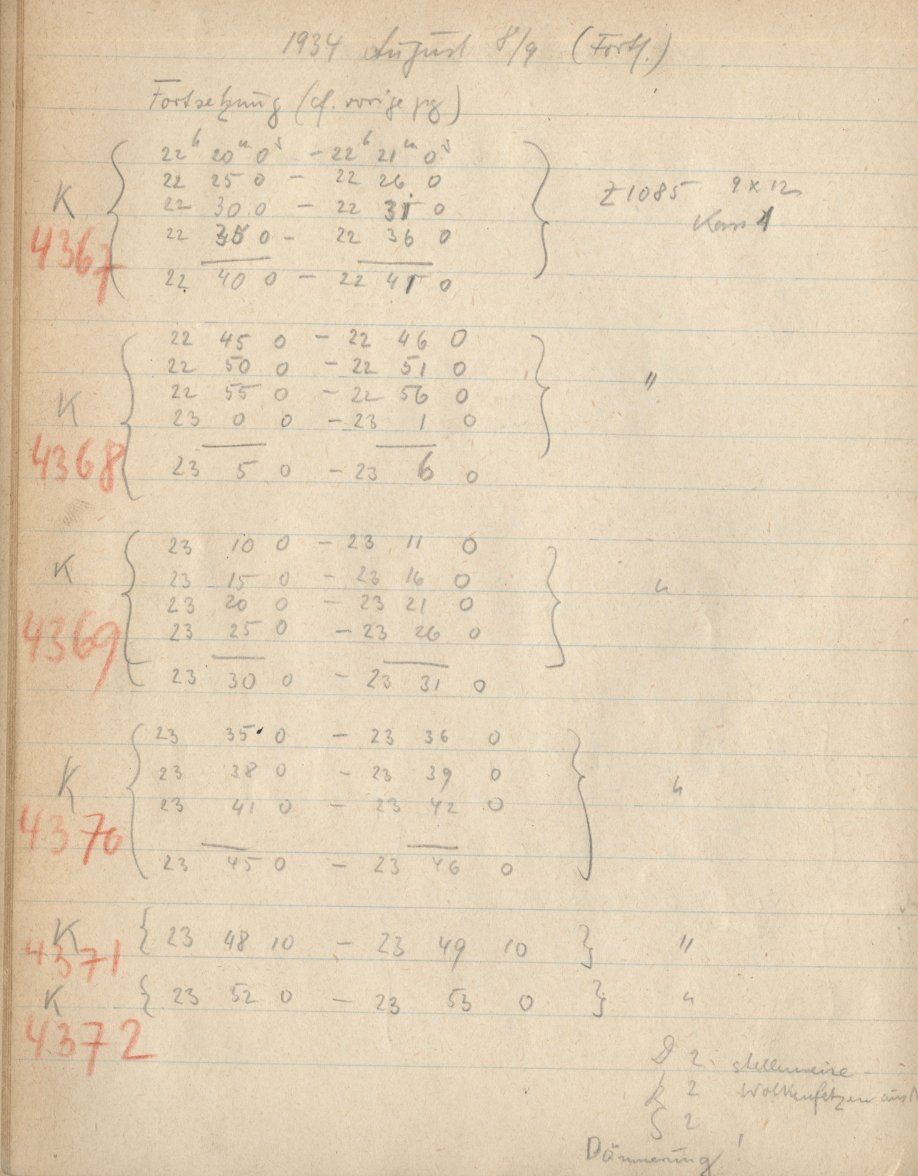 1934 August 8/9 (Forts.)
Fortsetzung (cf. vorige pg)
22h 20m 0s - 22h 21m 0s
22 25 0 - 22 26 0
K 22 30 0 - 22 31 0 Z1085 9x12
Kass 1
4367 22 35 0 - 22 36 0
22 40 0 - 22 41 0
22 45 0 - 22 46 0
22 50 0 - 22 51 0 "
K 22 55 0 - 22 56 0
23 0 0 - 23 1 0
4368 23 5 0 - 23 6 0
23 10 0 - 23 11 0
K 23 15 0 - 23 16 0 "
23 20 0 - 23 21 0
4369 23 25 0 - 23 26 0
23 30 0 - 23 31 0
23 35 0 - 23 36 0
K 23 38 0 - 23 39 0 "
23 41 0 - 23 42 0
4370
23 45 0 - 23 46 0
K 23 48 10 - 23 49 10 "
4371
K 23 52 0 - 23 53 0 "
4372
D 2 stellenweise -
R 2 Wolkenfetzen aus N
S 2
Dämmerung!